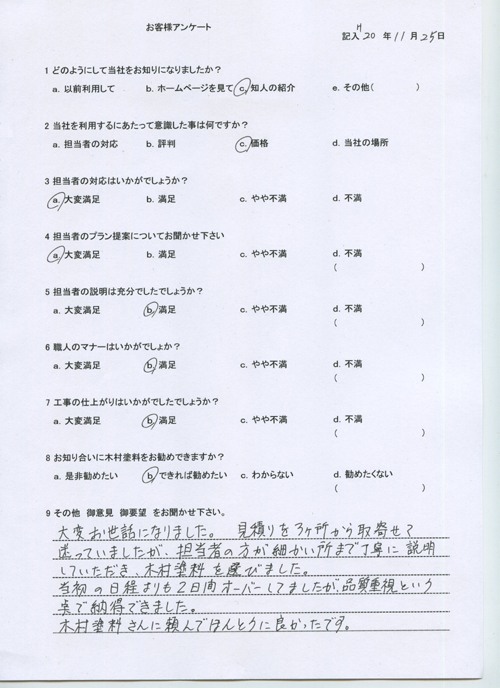 お客様アンケート
記入 H20 年 11 月 25 日
1 どのようにして当社をお知りになりましたか？
a. 以前利用して b. ホームページを見て c. 知人の紹介 e. その他( )
2 当社を利用するにあたって意識した事は何ですか？
a. 担当者の対応 b. 評判 c. 価格 d. 当社の場所
3 担当者の対応はいかがでしょうか？
a. 大変満足 b. 満足 c. やや不満 d. 不満
4 担当者のプラン提案についてお聞かせ下さい
a. 大変満足 b. 満足 c. やや不満 d. 不満
( )
5 担当者の説明は充分でしたでしょうか？
a. 大変満足 b. 満足 c. やや不満 d. 不満
( )
6 職人のマナーはいかがでしょか？
a. 大変満足 b. 満足 c. やや不満 d. 不満
( )
7 工事の仕上がりはいかがでしたでしょうか？
a. 大変満足 b. 満足 c. やや不満 d. 不満
( )
8 お知り合いに木村塗料をお勧めできますか？
a. 是非勧めたい b. できれば勧めたい c. わからない d. 勧めたくない
( )
9 その他 御意見 御要望 をお聞かせ下さい。
大変お世話になりました。 見積りを3ヶ所から取寄せて
迷っていましたが、担当者の方が細かい所まで丁寧に説明
していただき、木村塗料を選びました。
当初の日程よりも2日間オーバーしてましたが、品質重視という
事で納得できました。
木村塗料さんに頼んでほんとうに良かったです。